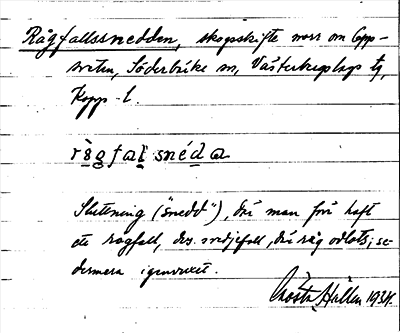 Rågfallssnedden, skogsskifte norr om Opp-
sveten, Söderbärke sn, Västerbergslags tg,
Kopp. l.
Sluttning ("snedd"), där man förr haft
ett rågfall, dvs. svedjefall, där råg odlats; se-
dermera igenvuxet.
Gösta Hallen 1934.